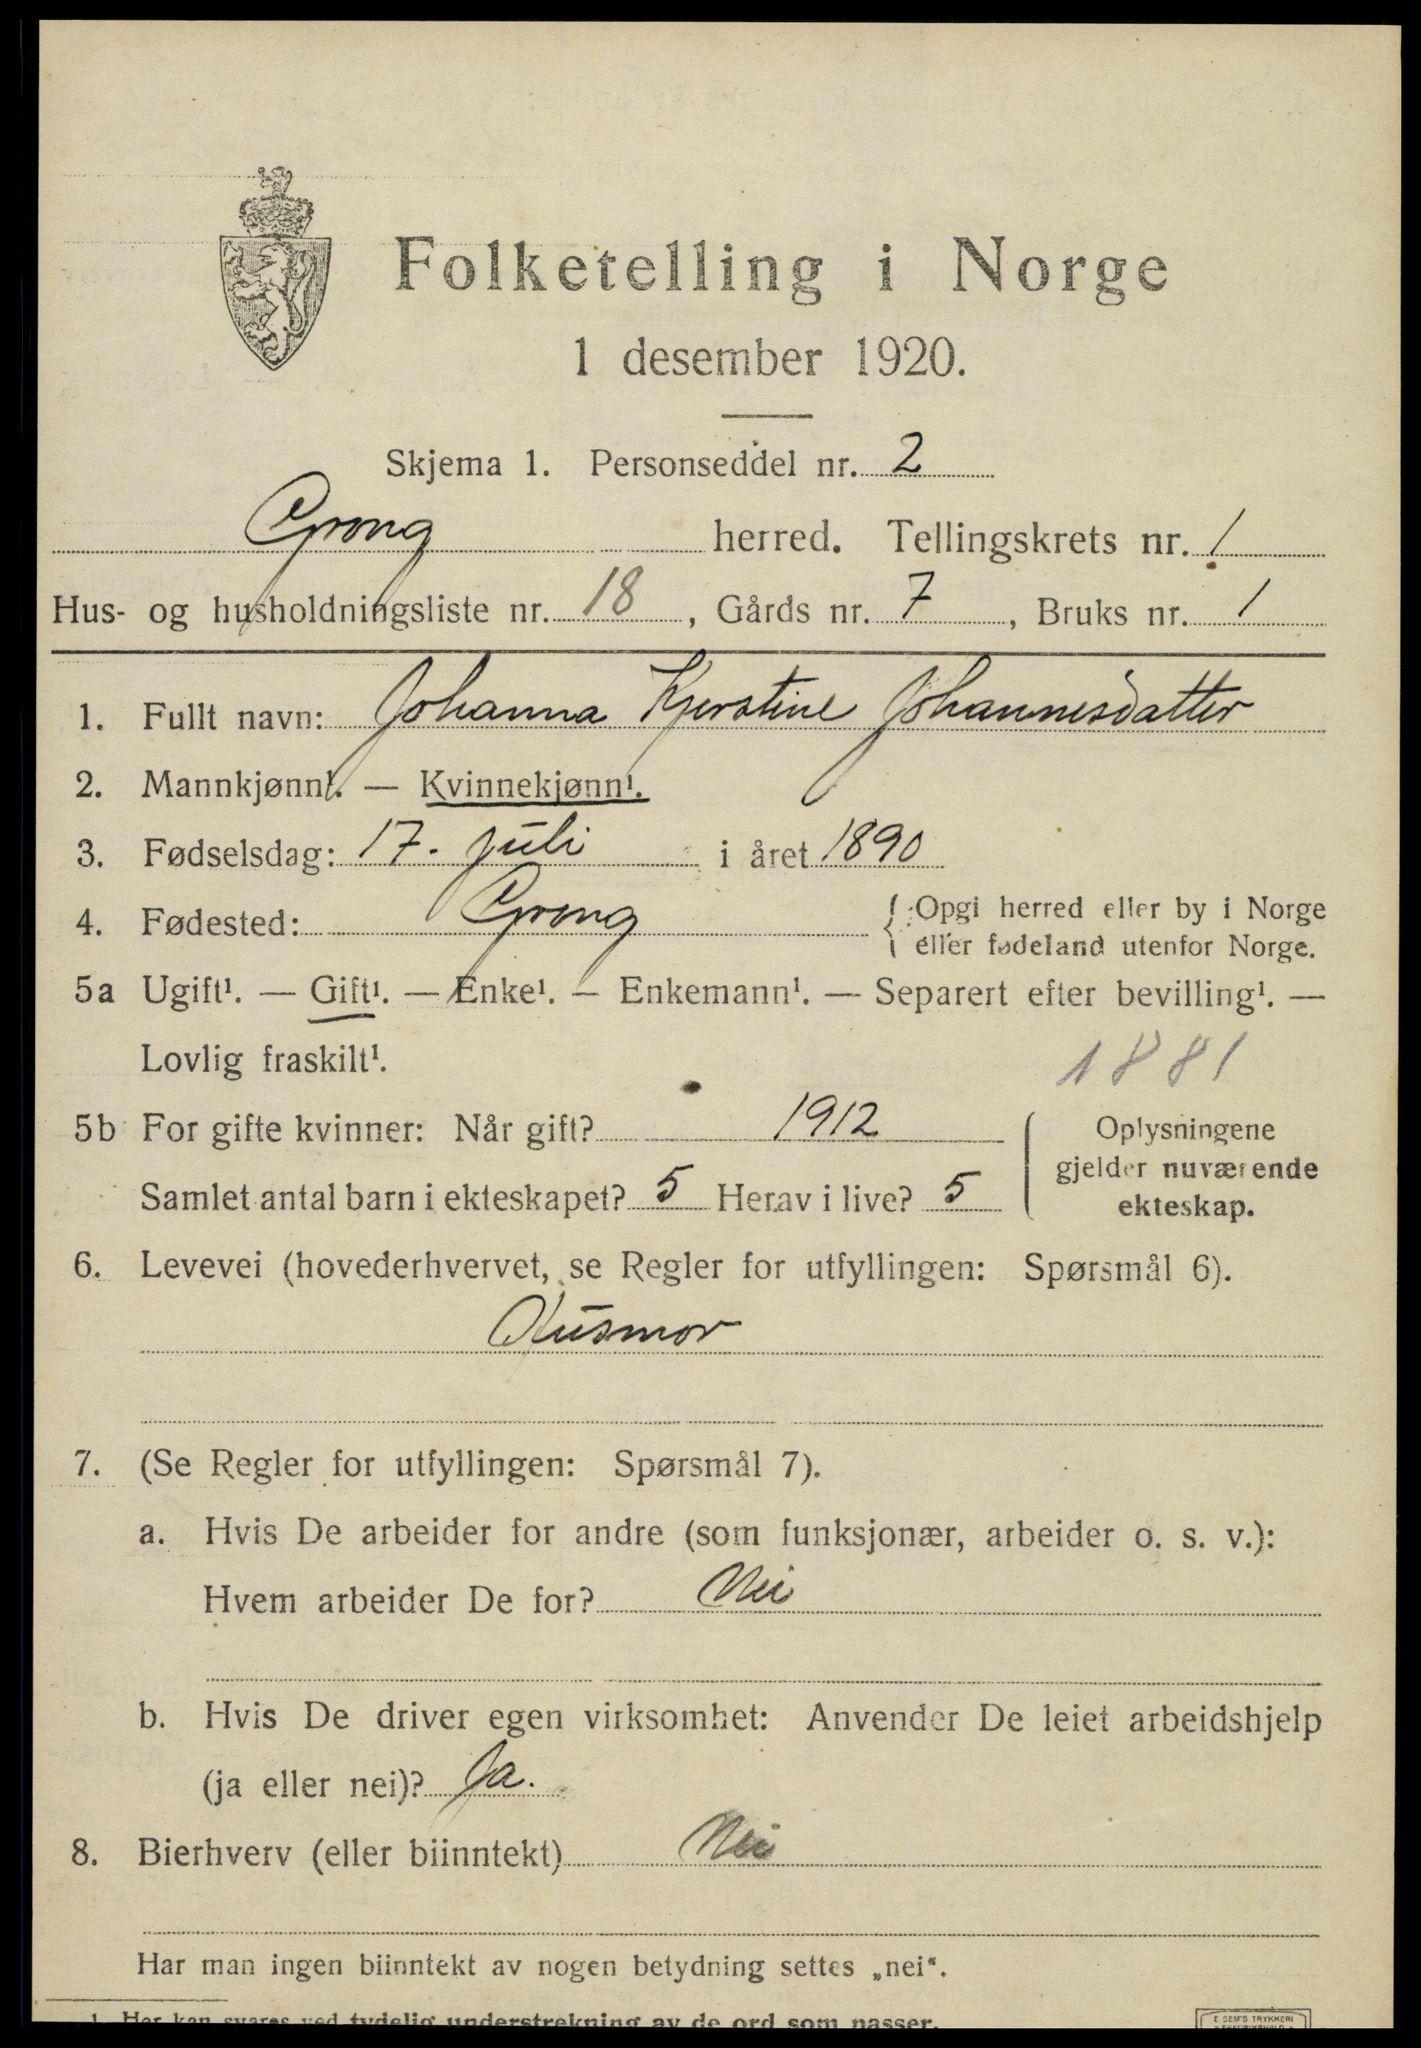 Folketelling i Norge
1 desember 1920.
Skjema 1. Personseddel nr. 2
Grong herred. Tellingskrets nr. 1
Hus- og husholdningsliste nr. 18, Gårds nr. 7, Bruks nr. 1
1. Fullt navn: Johanna Kjerstine Johannesdatter
2. Mannkjønn¹. — Kvinnekjønn¹.
3. Fødselsdag: 17. juli i året 1890
4. Fødested: Grong { Opgi herred eller by i Norge
eller fødeland utenfor Norge.
5a Ugift¹. — Gift¹. — Enke¹. — Enkemann¹. — Separert efter bevilling¹. —
Lovlig fraskilt¹.
1881
5b For gifte kvinner: Når gift? 1912
Samlet antal barn i ekteskapet? 5 Herav i live? 5
Oplysningene
gjelder nuværende
ekteskap.
6. Levevei (hovederhvervet, se Regler for utfyllingen: Spørsmål 6).
Husmor
7. (Se Regler for utfyllingen: Spørsmål 7).
a. Hvis De arbeider for andre (som funksjonær, arbeider o. s. v.):
Hvem arbeider De for? Nei
b. Hvis De driver egen virksomhet: Anvender De leiet arbeidshjelp
(ja eller nei)? Ja.
8. Bierhverv (eller biinntekt) Nei
Har man ingen biinntekt av nogen betydning settes „nei“.
1 Her kan svares ved tydelig understrekning av de ord som passer.
E. SEM'S TRYKKERI
- FREDRIKSHALD -